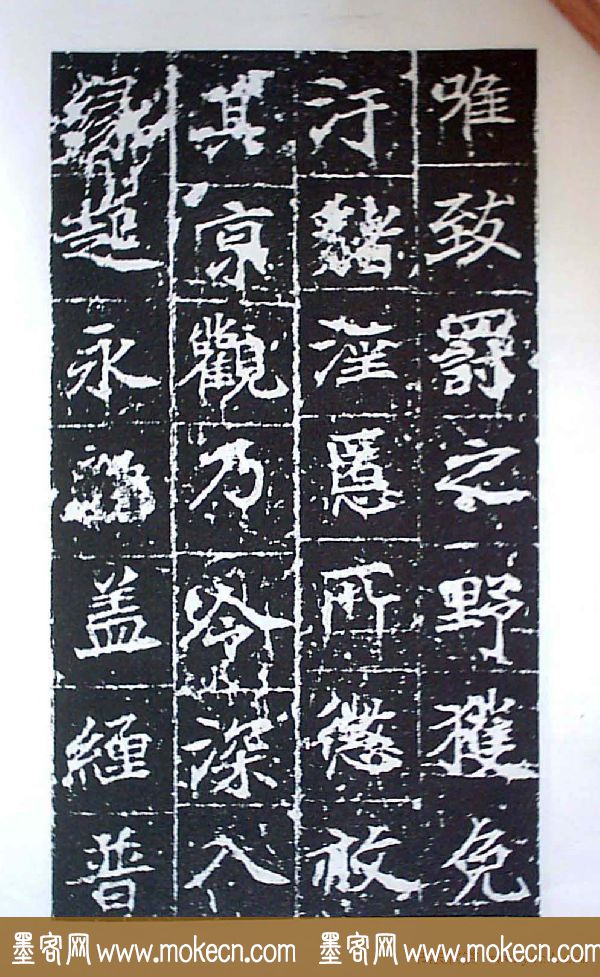 唯致罰之野獲免
汙豬淫慝所懲
其京觀乃深入
緣起永蓋纏普
墨客网 www.mokecn.com 墨客网 www.mokecn.com